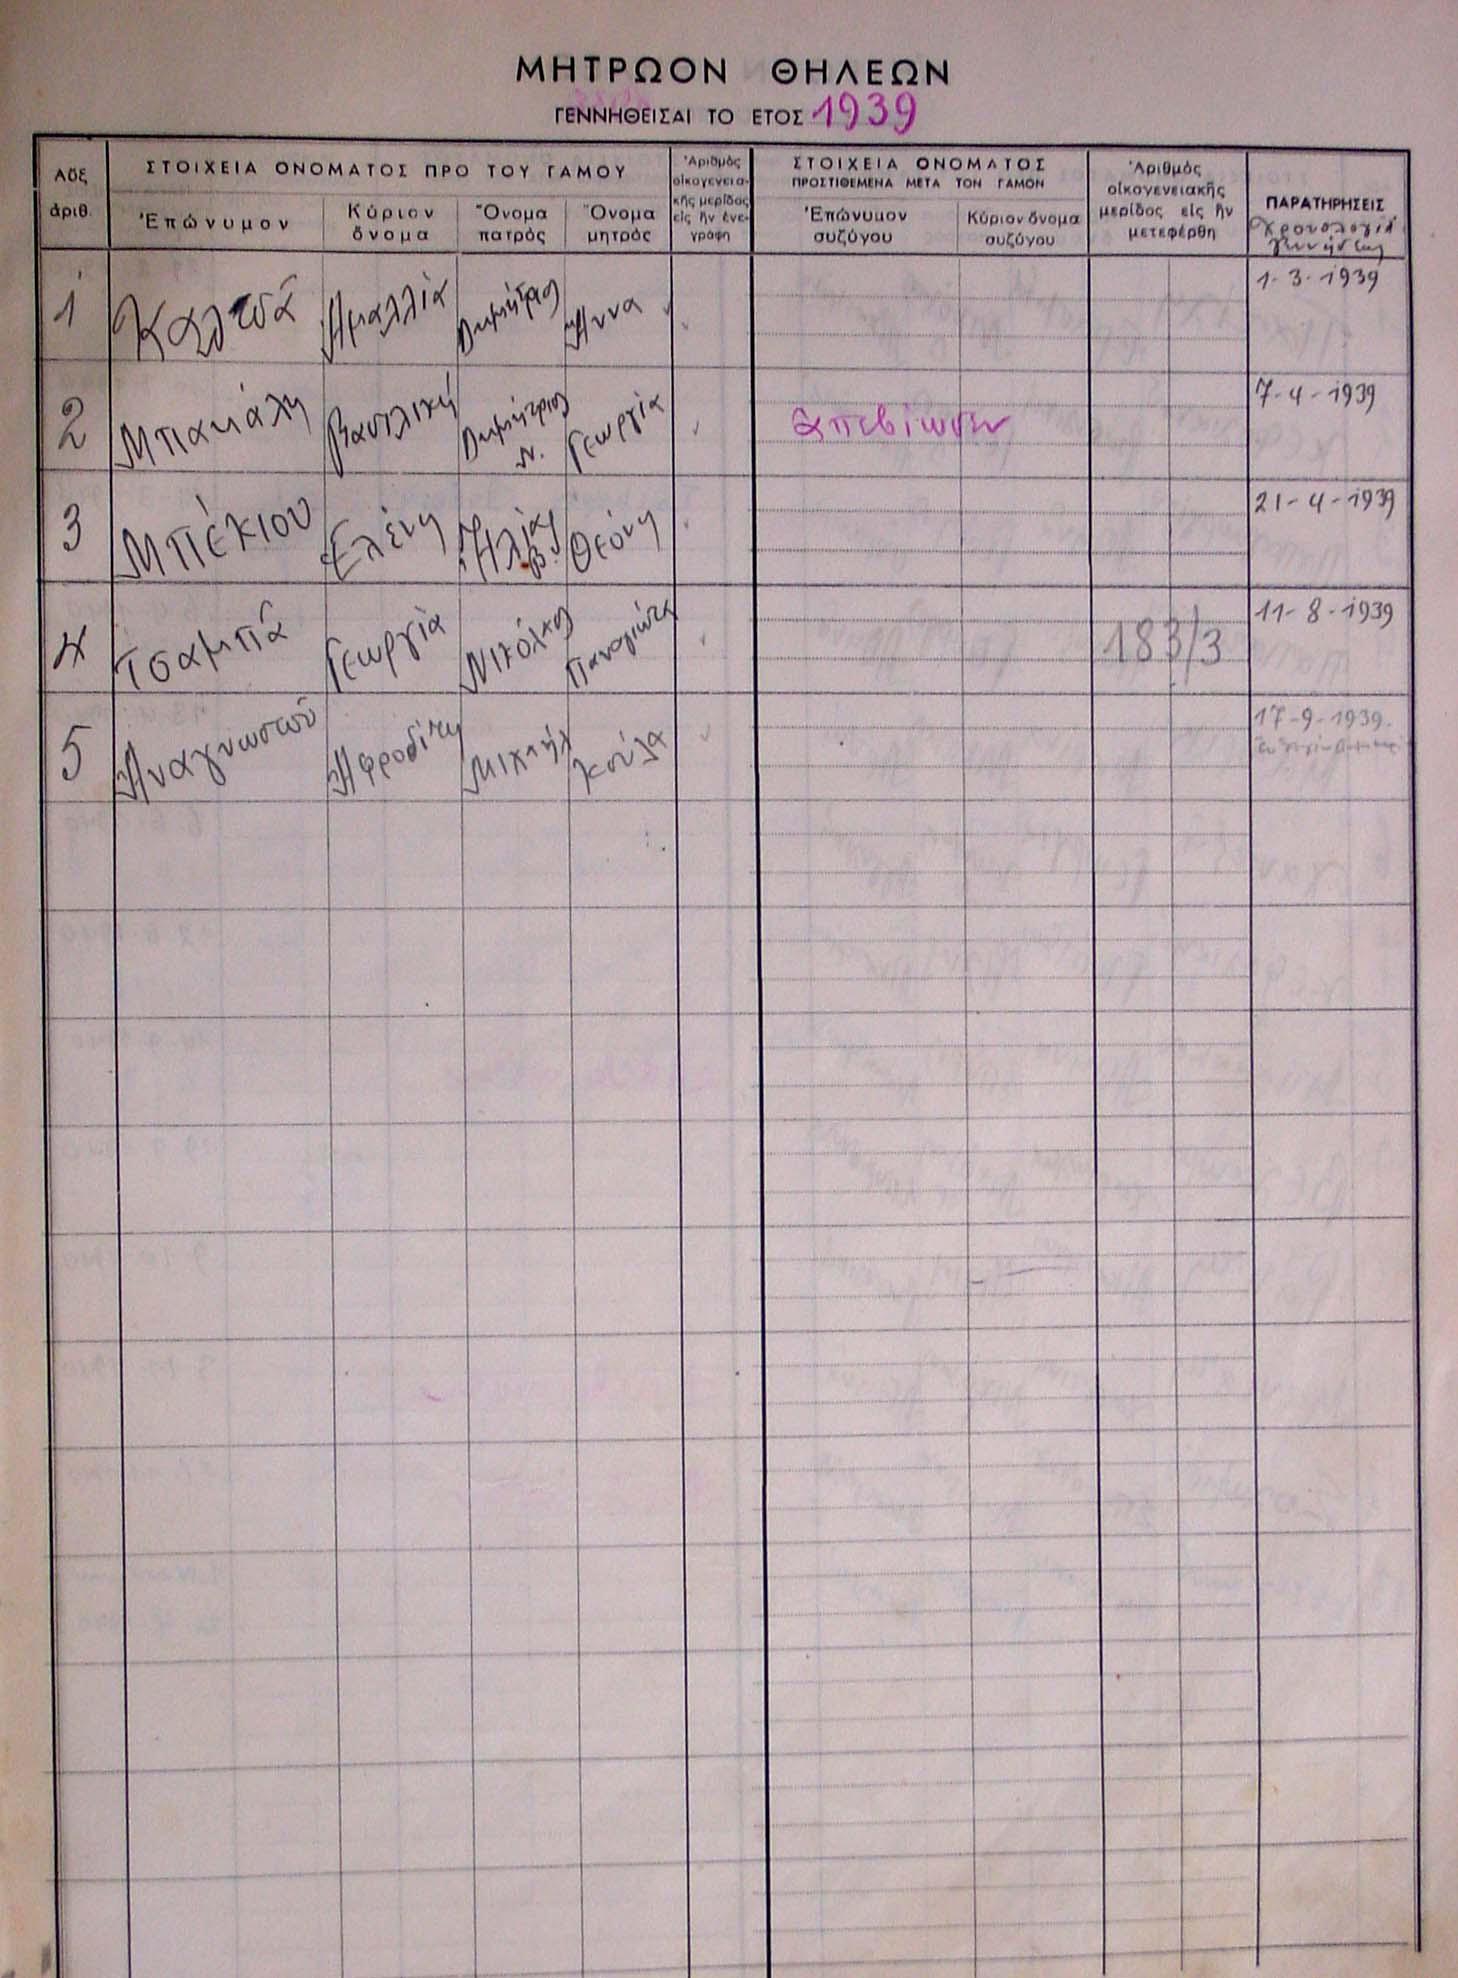 ΜΗΤΡΩΟΝ ΘΗΛΕΩΝ
ΓΕΝΝΗΘΕΙΣΑΙ ΤΟ ΕΤΟΣ 1939
Αὔξ ἀριθ.
ΣΤΟΙΧΕΙΑ ΟΝΟΜΑΤΟΣ ΠΡΟ ΤΟΥ ΓΑΜΟΥ
Ἐπώνυμον
Κύριον ὄνομα
Ὄνομα πατρὸς
Ὄνομα μητρὸς
Ἀριθμὸς οἰκογενεια-κῆς μερίδος εἰς ἣν ἐνε-γράφη
ΣΤΟΙΧΕΙΑ ΟΝΟΜΑΤΟΣ
ΠΡΟΣΤΙΘΕΜΕΝΑ ΜΕΤΑ ΤΟΝ ΓΑΜΟΝ
Ἐπώνυμον συζύγου
Κύριον ὄνομα συζύγου
Ἀριθμὸς οἰκογενειακῆς μερίδος εἰς ἣν μετεφέρθη
ΠΑΡΑΤΗΡΗΣΕΙΣ
Χρονολογία γεννήσεως
1 Καλτσᾶ Ἀμαλλία Δημήτριος Ἄννα 1-3-1939
2 Μπακάλη Βασιλική Δημήτριος Ν. Γεωργία ἀπεβίωσεν 7-4-1939
3 Μπέκιου Ἑλένη Ἠλίας Β. Θεόνη 21-4-1939
4 Τσαμπᾶ Γεωργία Νικόλαος Παναγιώτα 183/3 11-8-1939
5 Ἀναγνωστοῦ Ἀφροδίτη Μιχαήλ Κούλα 17-9-1939.